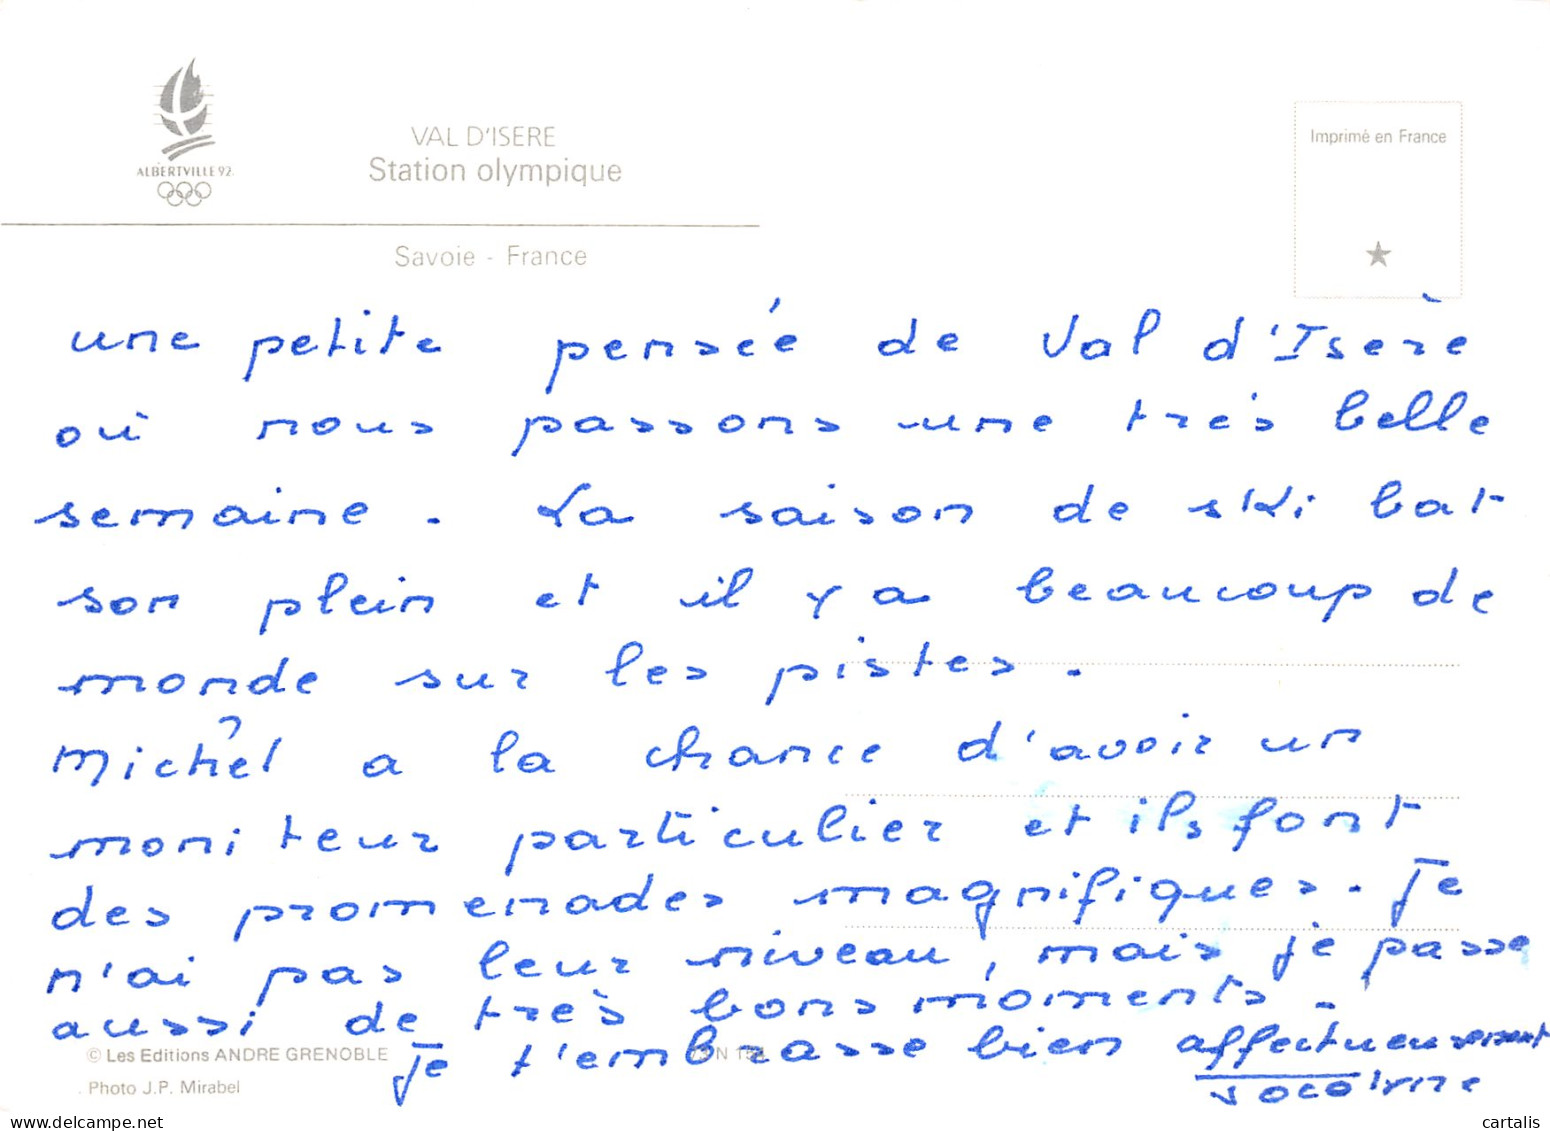 ALBERTVILLE 92
VAL D'ISERE
Station olympique
Savoie - France
Imprimé en France
une petite pensée de Val d'Isère
où nous passons une très belle
semaine. La saison de ski bat
son plein et il y a beaucoup de
monde sur les pistes.
Michel a la chance d'avoir un
moniteur particulier et ils font
des promenades magnifiques. Je
n'ai pas leur niveau, mais je passe
aussi de très bons moments.
Je t'embrasse bien affectueusement
Jocelyne
© Les Editions ANDRE GRENOBLE
Photo J.P. Mirabel
cartalis